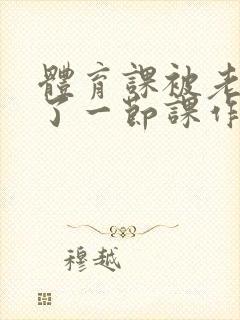 體育課被老
了一節課作
穆越